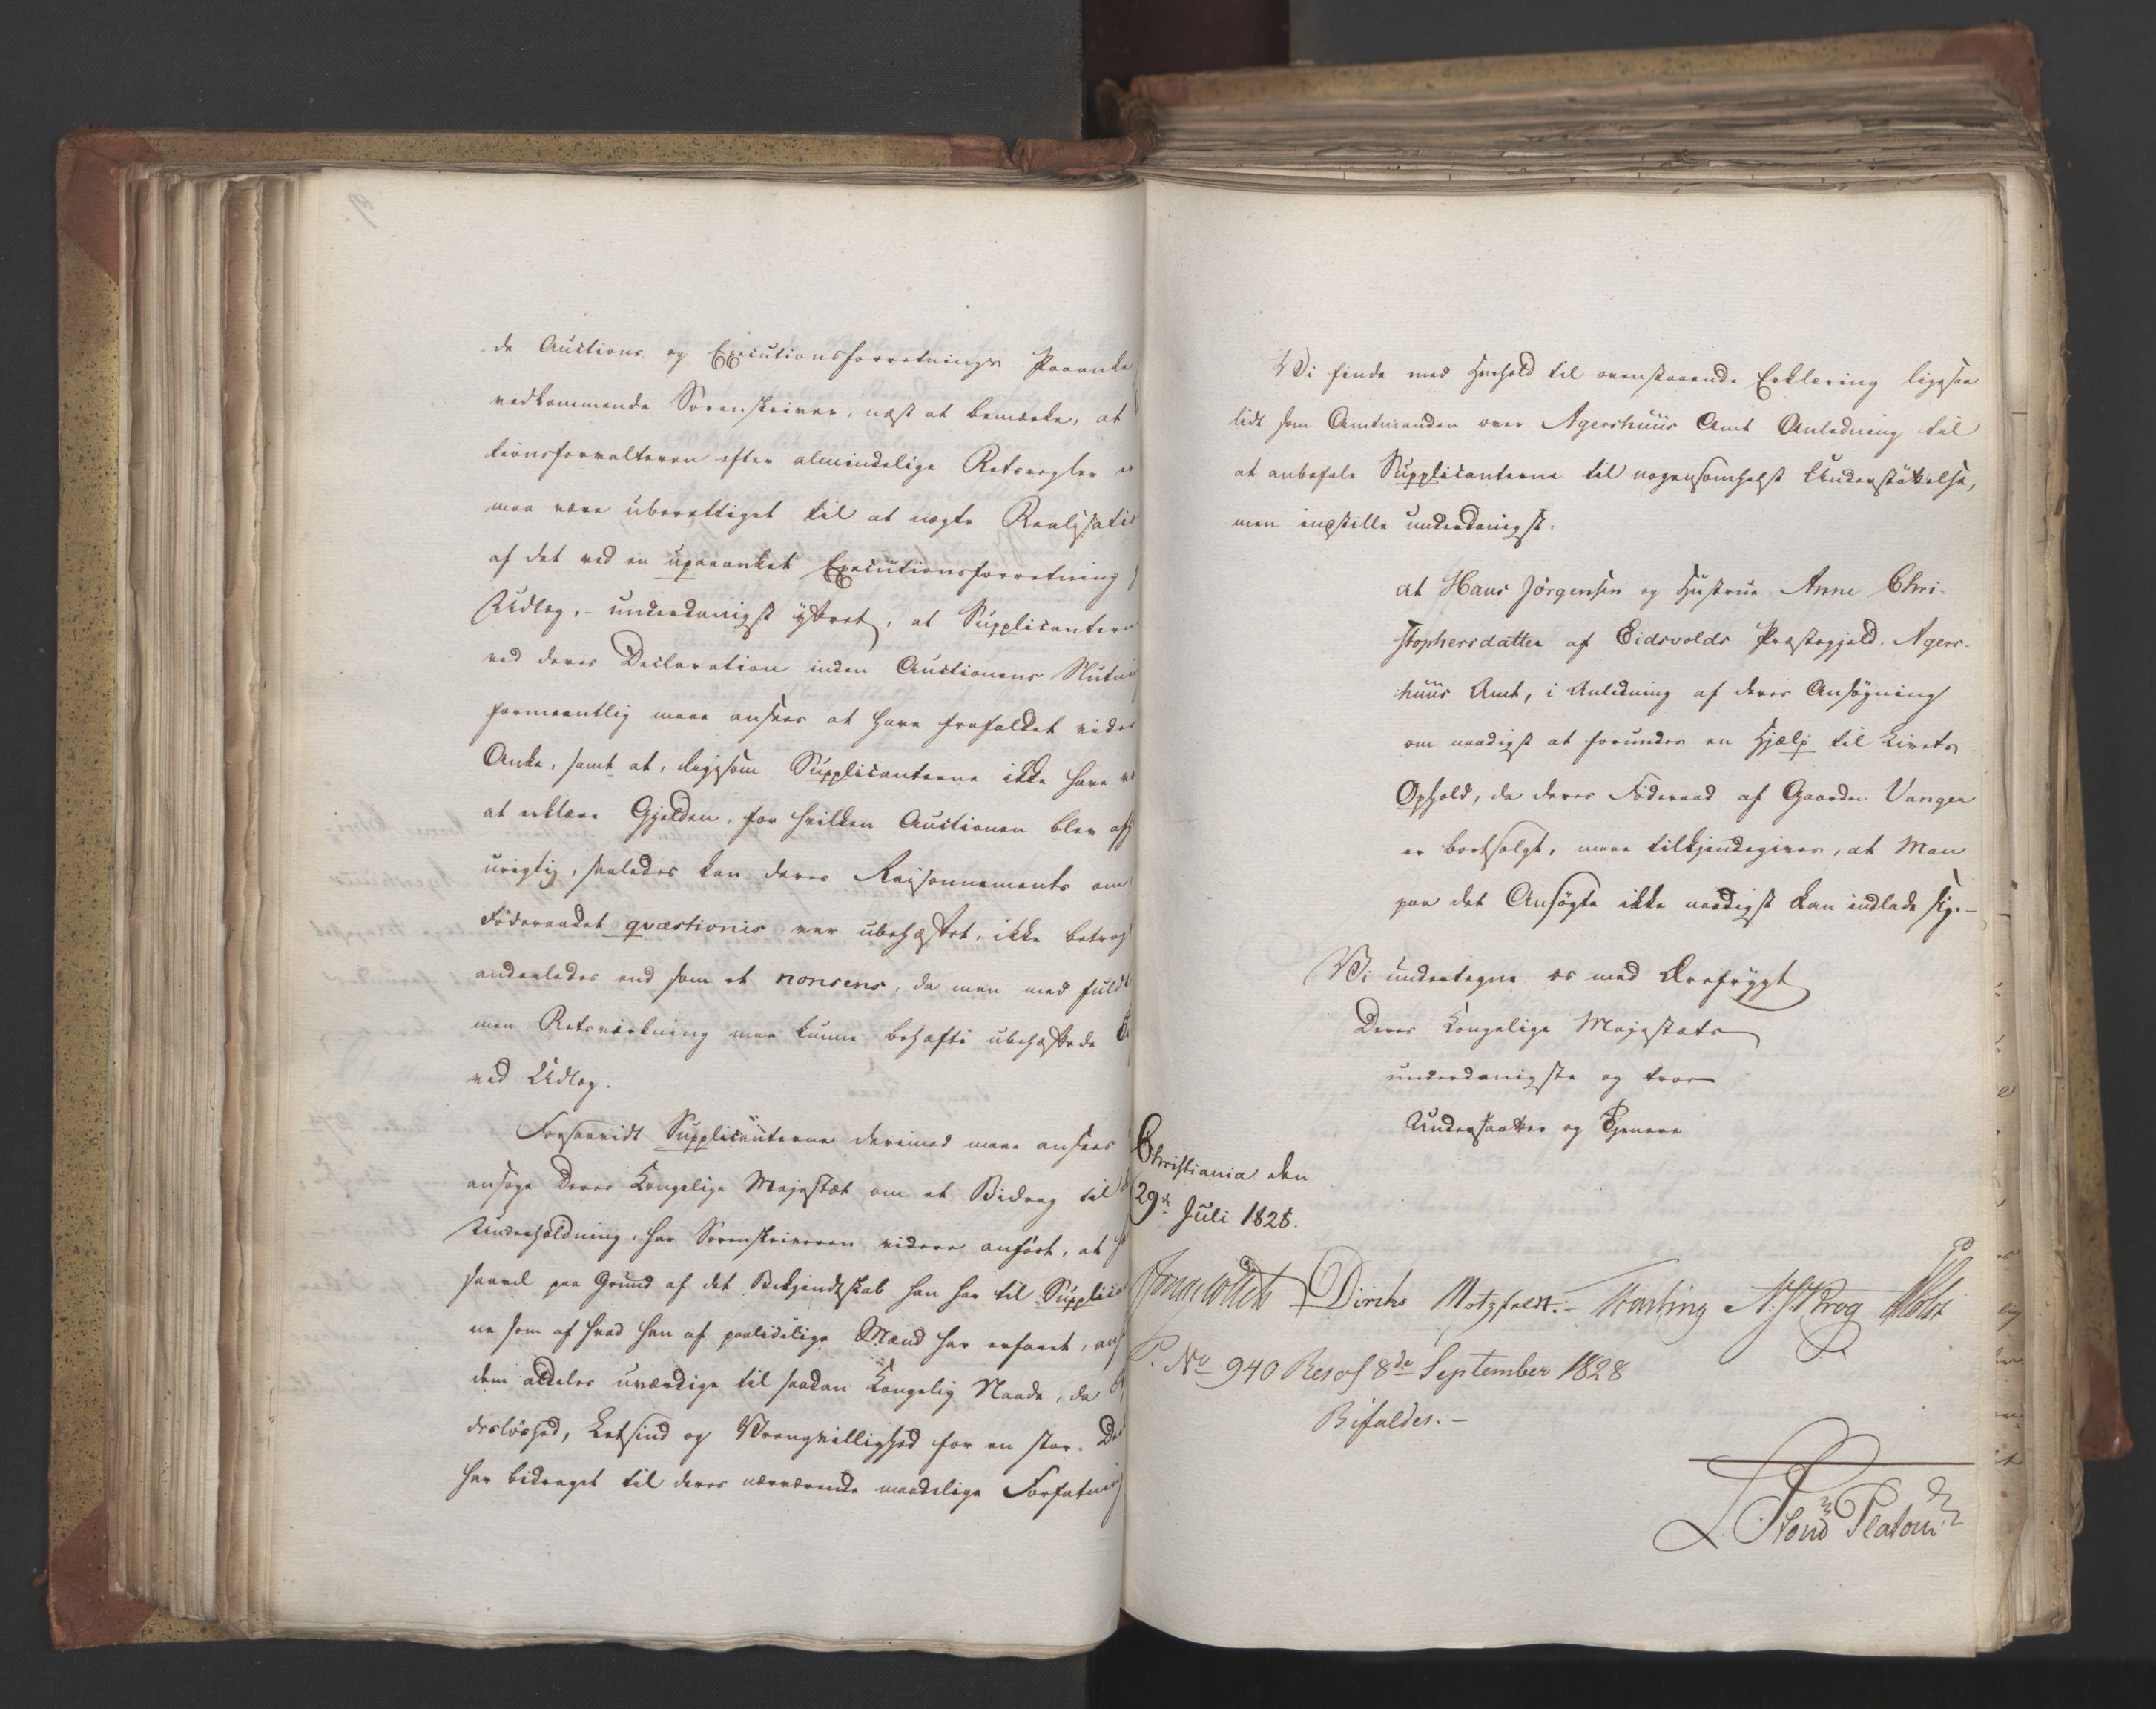 de Auctions og Executionsforretnings Paaanke
vedkommende Sorenskriver, næst at bemærke, at
tionsforvalteren efter almindelige Retsregler
maa være uberettiget til at nægte Realisatio
af det ved en upaaanket Executionsforretning
Udlæg, - underdanigst yttret, at Supplicantern
ved deres Declaration inden Auctionens Slutni
formeentlig maae ansees at have frafaldet vider
Anke, samt at, ligesom Supplicanterne ikke have
at erklære Gjelden, for hvilken Auctionen blev
urigtig, saaledes kan deres Raisonnements om
Föderaadet qvæstionis var ubehæftet, ikke betrag
anderledes end som et nonsens, da man med fuld
men Retsvirkning maa kunne behæfte ubehæftede
ved Udlæg.
Forsaavidt Supplicanterne derimod maae ansees
ansøge Deres Kongelige Majestæt om et Bidrag til
Underholdning, har Sorenskriveren videre anført, at
saavel paa Grund af det Bekjendtskab han har til Supplica
ne som af hvad han af paalidelige Mænd har erfaret,
dem aldeles uværdige til saadan Kongelig Naade, da
desløshed, Letsind og Vrangvillighed for en stor De
har bidraget til deres nærværende maadelige Forfatning
Vi finde med Henhold til ovenstaaende Erklæring ligesaa
lidt som Amtmanden over Agershuus Amt Anledning til
at anbefale Supplicanterne til nogensomhelst Understöttelse,
men indstille underdanigst:
at Hans Jörgensen og Hustrue Anne Chri-
stophersdatter af Eidsvolds Præstegjeld, Agers-
huus Amt, i Anledning af deres Ansøgning
om naadigst at forundes en Hjælp til Livets
Ophold, da deres Föderaad af Gaarden Vangen
er bortsolgt, maae tilkjendegives, at Man
paa det Ansøgte ikke naadigst kan indlade sig.-
Vi undertegne os med Ærefrygt
Deres Kongelige Majestæts
underdanigste og troe
Undersaatter og Tjenere
Christiania den
29de Juli 1828.
Diriks Motzfeldt.- N. Krog Holst
P. No 940 Resol 8de September 1828
Bifaldes.-